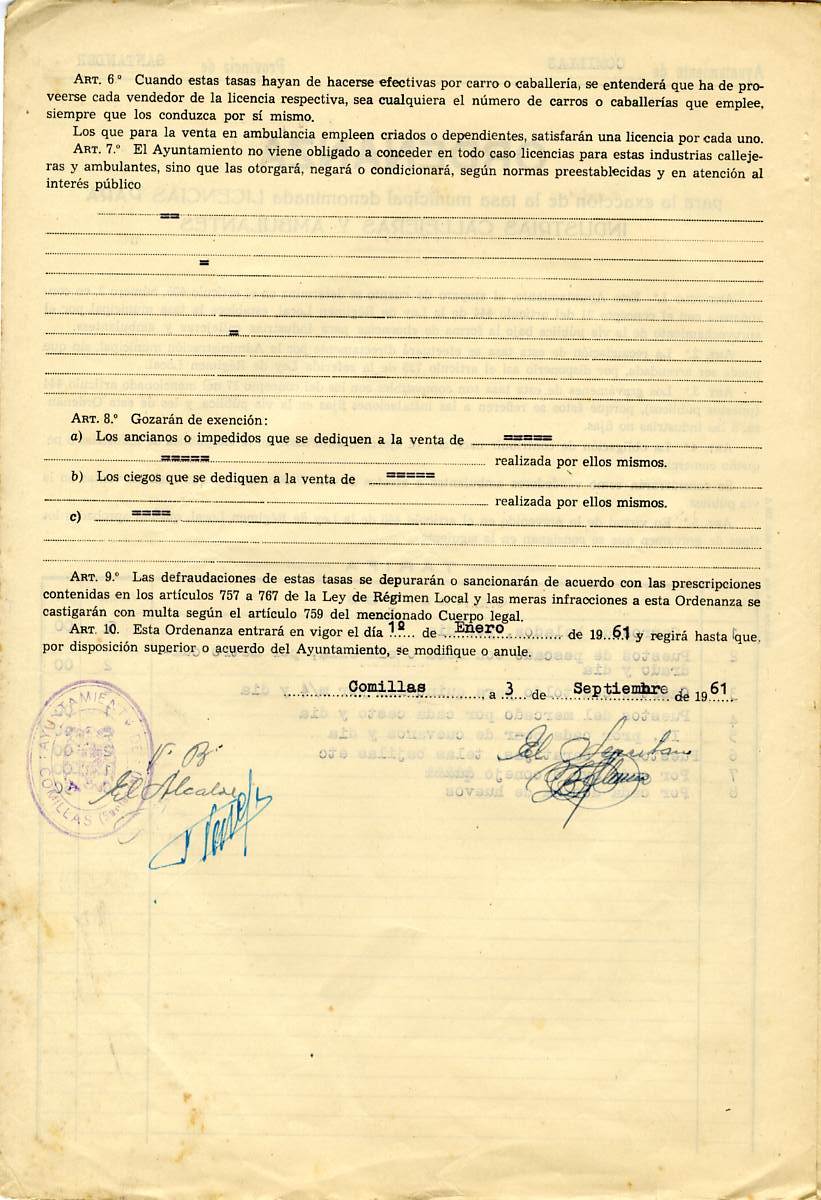 ART. 6º Cuando estas tasas hayan de hacerse efectivas por carro o caballería, se entenderá que ha de pro-
veerse cada vendedor de la licencia respectiva, sea cualquiera el número de carros o caballerías que emplee,
siempre que los conduzca por sí mismo.
Los que para la venta en ambulancia empleen criados o dependientes, satisfarán una licencia por cada uno.
ART. 7.º El Ayuntamiento no viene obligado a conceder en todo caso licencias para estas industrias calleje-
ras y ambulantes, sino que las otorgará, negará o condicionará, según normas preestablecidas y en atención al
interés público
==
=
=
ART. 8.º Gozarán de exención:
a) Los ancianos o impedidos que se dediquen a la venta de =====
===== realizada por ellos mismos.
b) Los ciegos que se dediquen a la venta de =====
realizada por ellos mismos.
c) ====
ART. 9.º Las defraudaciones de estas tasas se depurarán o sancionarán de acuerdo con las prescripciones
contenidas en los artículos 757 a 767 de la Ley de Régimen Local y las meras infracciones a esta Ordenanza se
castigarán con multa según el artículo 759 del mencionado Cuerpo legal.
ART. 10. Esta Ordenanza entrará en vigor el día 1º de Enero de 1961 y regirá hasta que,
por disposición superior o acuerdo del Ayuntamiento, se modifique o anule.
Comillas, a 3 de Septiembre de 1961
AYUNTAMIENTO DE
COMILLAS
V. B.
El Alcalde
El Secretario